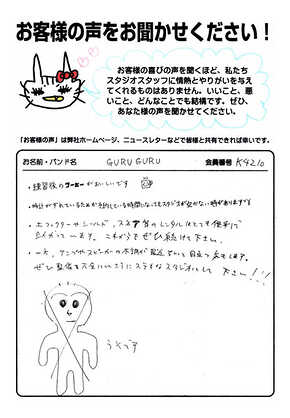 お客様の声をお聞かせください！
お客様の喜びの声を聞くほど、私たち
スタジオスタッフに情熱とやりがいを与え
てくれるものはありません。いいこと、悪
いこと、どんなことでも結構です。ぜひ、
あなた様の声を聞かせてください。
「お客様の声」は弊社ホームページ、ニュースレターなどで皆様と共有できれば幸いです。
お名前・バンド名 GURUGURU 会員番号 K4210
・練習後のコーヒーがおいしいです
・時計がずれているためか予約している時間になってもスタジオが空かない時があります
・エフェクターやシンバル、スネア等のレンタルはとても便利で
立
これからもぜひ続けて下さい。
・一方、アンプやスピーカーの不調が最近
目立
ぜひ整備を
ステキなスタジオにして下さい!!!
うそです